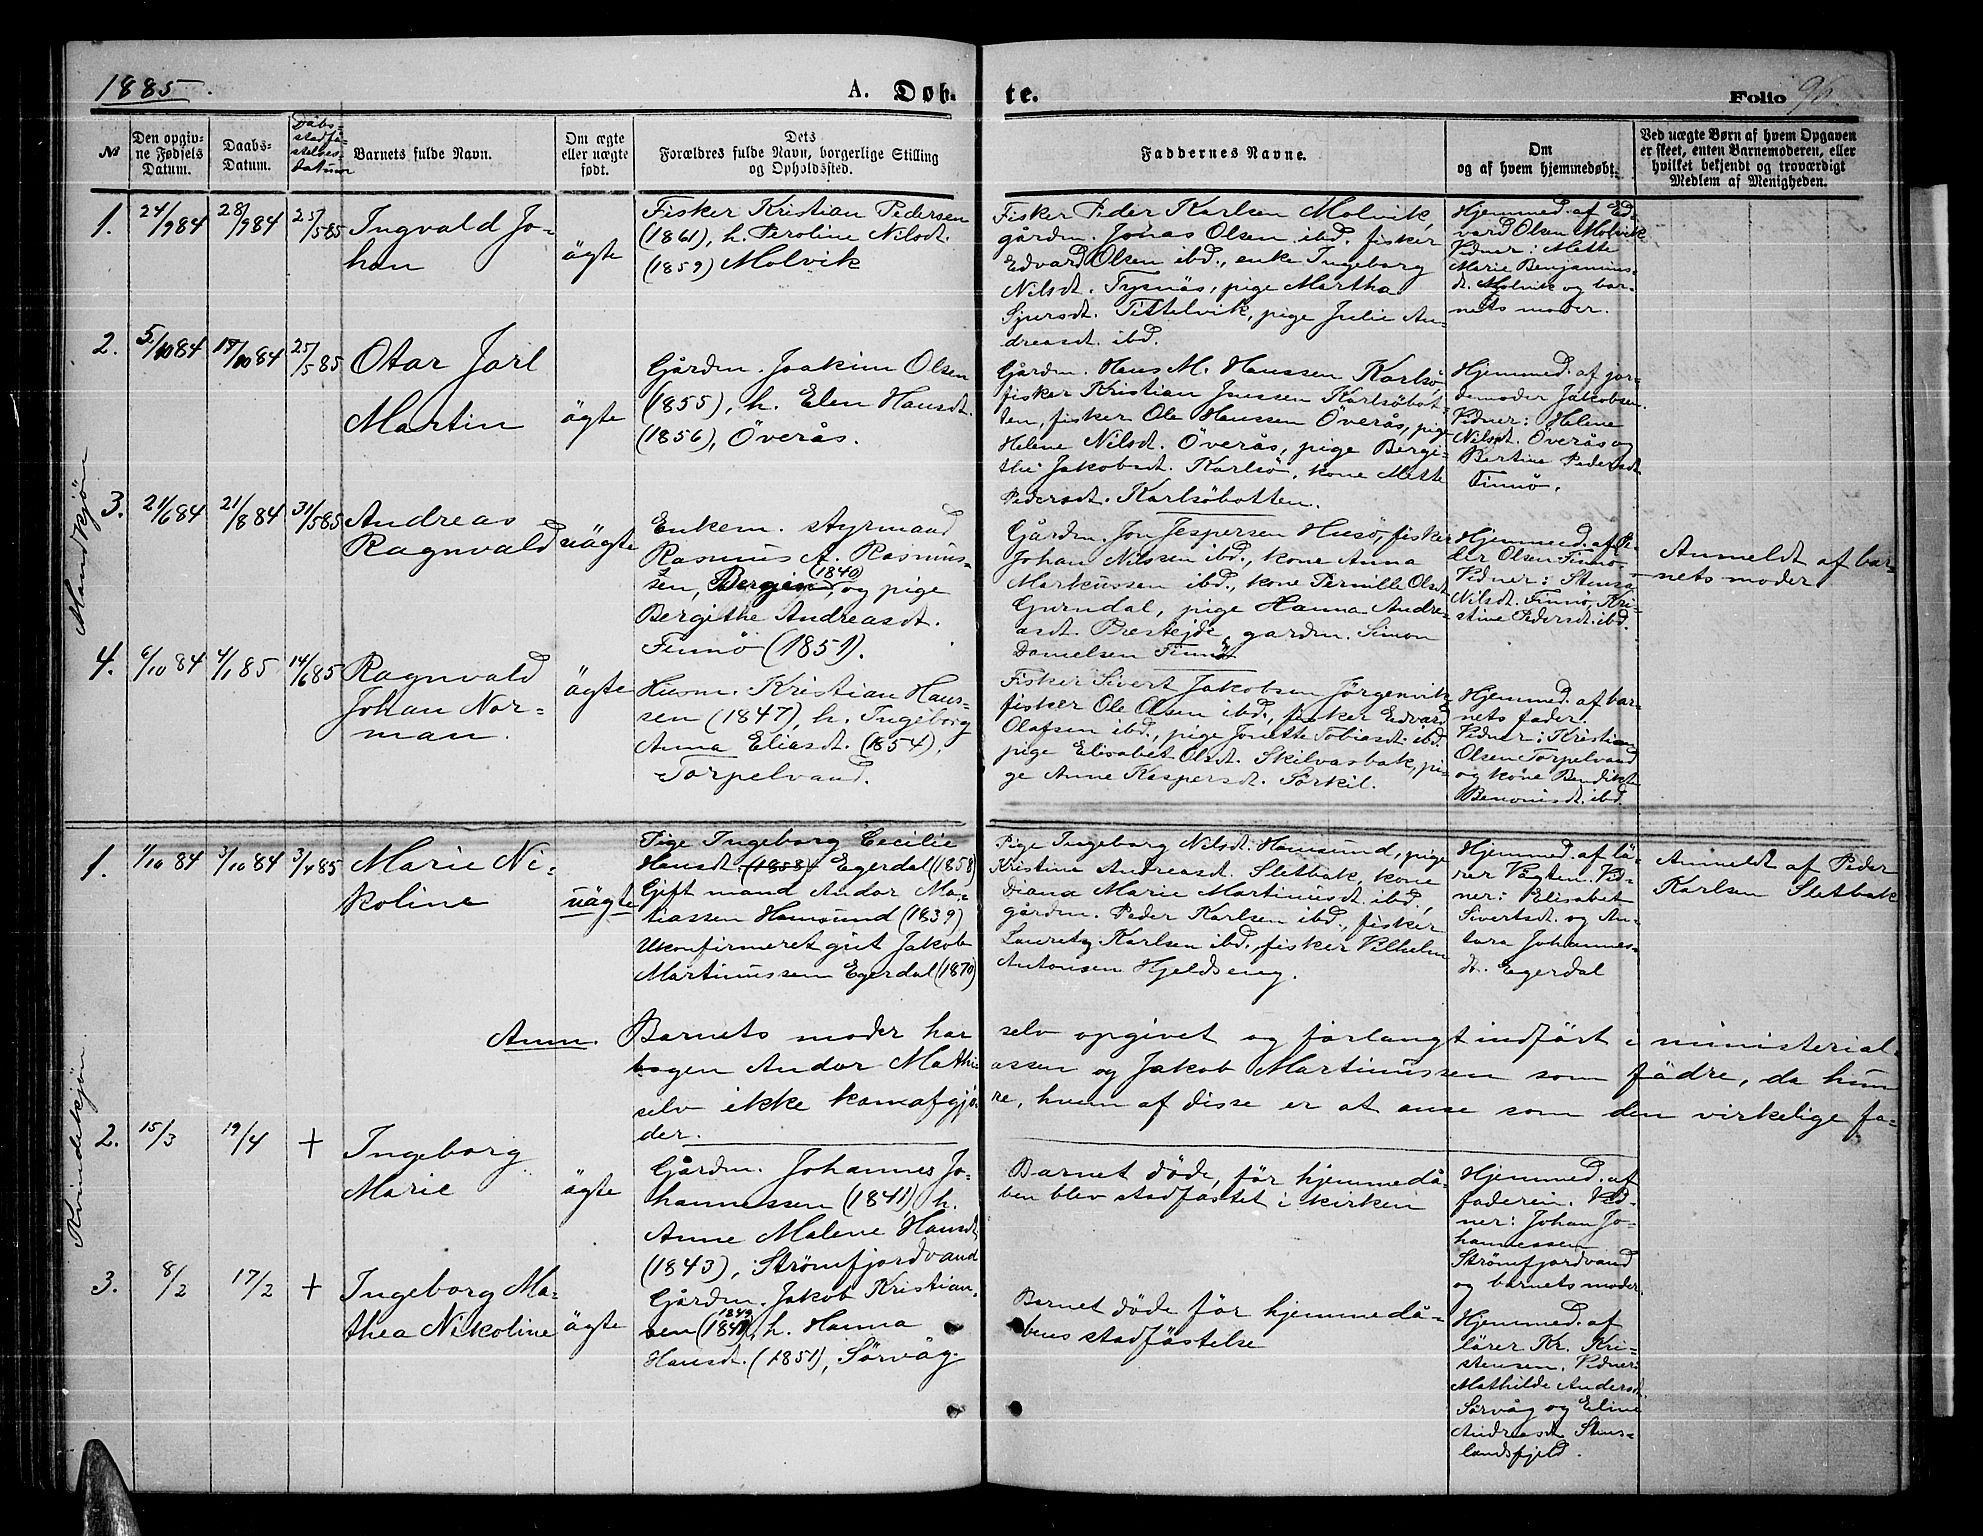 1885.
A. Døb-
te.
Folio 96.
№
Den opgiv-
ne Fødsels
Datum.
Daabs-
Datum.
Dåbs-
stadfæ-
stelses-
datum
Barnets fulde Navn.
Om ægte
eller uægte
født.
Dets
Forældres fulde Navn, borgerlige Stilling
og Opholdssted.
Faddernes Navne.
Om
og af hvem hjemmedøbt.
Ved uægte Børn af hvem Opgaven
er skeet, enten Barnemoderen, eller
hvilket bekjendt og troværdigt
Medlem af Menigheden.
Mandkjøn
1.
24/9 84
28/9 84
25/5 85
Ingvald Jo-
han
ägte
Fisker Kristian Pedersen
(1861), h. Peroline Nilsdt.
(1859) Molvik
Fisker Peder Karlsen Molvik,
gårdm. Jonas Olsen ibd. fisker
Edvard Olsen ibd., enke Ingeborg
Nilsdt. Tysnäs, pige Martha
Sjursdt. Tittelvik, pige Julie An-
dreasdt. ibd.
Hjemmed. af Ed-
vard Olsen Molvik
Vidner: Mette
Marie Benjamins-
dt. Molvik og bar-
nets moder.
2.
5/10 84
19/10 84
25/5 85
Otar Jarl
Martin
ägte
Gårdm. Joakim Olsen
(1855), h. Elen Hansdt.
(1856), Överås.
Gårdm. Hans M. Hanssen Karlsö,
fisker Kristian Jenssen Karlsöbot-
ten, fisker Ole Hanssen Överås, pige
Helene Nilsdt. Överås, pige Bergi-
the Jakobsdt. Karlsö, kone Mette
Pedersdt. Karlsöbotten.
Hjemmed. af jor-
demoder Jakobsen.
Vidner: Helene
Nilsdt. Överås og
Bertine Pedersdt
Finnö.
3.
21/6 84
21/8 84
31/5 85
Andreas
Ragnvald
uägte
Enkem. styrmand
Rasmus A. Rasmus-
sen, Bergen (1840), og pige
Bergithe Andreasdt.
Finnö (1851).
Gårdm. Jon Jespersen Husö, fisker
Johan Nilsen ibd., kone Anna
Markussen ibd., kone Pernille Olsdt
Gurndal, pige Hanna Andre-
asdt. Prestejde, gårdm. Simon
Danielsen Finnö
Hjemmed. af Pe-
der Olsen Finnö
Vidner: Stensa
Nilsdt. Finnö, Kri-
stine Pedersdt. ibd.
Anmeldt af bar-
nets moder
4.
6/10 84
4/1 85
14/6 85
Ragnvald
Johan Nor-
man.
ägte
Husm. Kristian Hans-
sen (1847), h. Ingeborg
Anna Eliasdt. (1854),
Torpelvand.
Fisker Sivert Jakobsen Jörgenvik,
fisker Ole Olsen ibd., fisker Edvard
Olafsen ibd., pige Jonette Tobiasdt. ibd.
pige Elisabet Olsdt. Skilvasbak, pi-
ge Anne Kaspersdt. Sörkil.
Hjemmed. af bar-
nets fader.
Vidner: Kristian
Olsen Torpelvand
og kone Bendikte
Benonisdt. ibd.
Kvindekjøn
1.
1/10 84
3/10 84
3/4 85
Marie Ni-
koline
uägte
Pige Ingeborg Cecilie
Hansdt. (1858) Egerdal (1858)
Gift mand Andor Ma-
tiassen Hamsund (1839)
Ukonfirmeret gut Jakob
Martinussen Egerdal (1870)
Pige Ingeborg Nilsdt. Hamsund, pige
Kristine Andreasdt. Sletbak, kone
Diana Marie Martinusdt ibd,
gårdm. Peder Karlsen ibd., fisker
Lauretz Karlsen ibd., fisker Vilhelm
Antonsen Hjeldseng.
Hjemmed. af lä-
rer Vagten. Vid-
ner: Elisabet
Sivertsdt. og An-
tara Johannes-
dt. Egerdal
Anmeldt af Peder
Karlsen Sletbak
Anm. Barnets moder har selv opgivet og forlangt indfört i ministerial-
bogen Andor Mathi- assen og Jakob Martinussen som fädre, da hun
selv ikke kan afgjö- re, hvem af disse er at anse som den virkelige fa-
der.
2.
15/3
19/4
+
Ingeborg
Marie
ägte
Gårdm. Johannes Jo-
hannessen (1841) h.
Anne Malene Hansdt
(1843), Strömfjordvand
Barnet döde, för hjemmedå-
ben blev stadfästet i kirken
Hjemmed. af
faderen. Vid-
ner: Johan Jo-
hannessen
Strömfjordvand
og barnets moder.
3.
8/2
17/2
+
Ingeborg Ma-
thea Nikoline
ägte
Gårdm. Jakob Kristian-
sen (1849), h. Hanna
Hansdt. (1851), Sörvåg.
Barnet döde för hjemmedå-
bens stadfästelse
Hjemmed. af
lärer Kr. Kri-
stensen. Vidner:
Mathilde Andersdt.
Sörvåg og Eline
Andreasdt Stens-
landsfjeld.